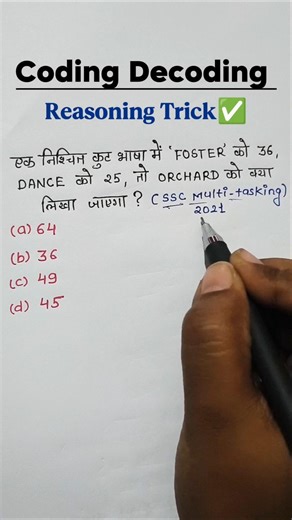 Coding Decoding
Reasoning Trick✅
एक निश्चित कुट भाषा में 'FOSTER' को 36,
DANCE को 25, तो ORCHARD को क्या
लिखा जाएगा ? (SSC Multi-tasking)
2021
(a) 64
(b) 36
(c) 49
(d) 45